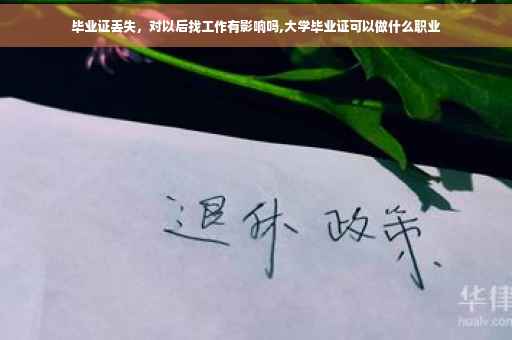 毕业证丢失，对以后找工作有影响吗,大学毕业证可以做什么职业
退休 政策
华律
hualv.com